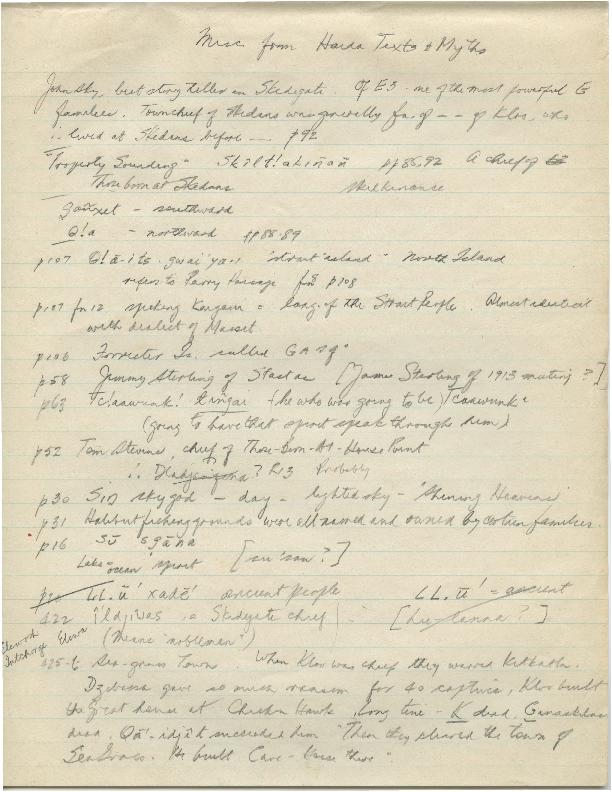 Misc from Haida Texts & Myths
John Sky, best story teller in Skedegate. Of E3 - one of the most powerful E
families. Town chief of Skedans was generally fn. of -- of Kloo, who
∴ lived at Skedans before --- p92
"Properly Sounding" Skîlt!akîñañ pp86,92 A chief of
Those born at Skedans Skilkinance
- southward
Q!a - northward pp88-89
p107 Q!ā-its gwai'ya-i 'strait island' North Island
refers to Parry Passage fn8 p108
p107 fn 12 speking Kaigani = lang. of the Strait People. Almost identical
with dialect of Masset
p106 Forrester Is. called
p58 Jimmy Sterling of Stastas [James Sterling of 1913 meeting ?]
p63 (he who was going to be)
(going to have that spirit speak through him)
p52 Tom Stevens, chief of Those-Born-At-House Point
∴ ? R13 Probably
p30 Sîñ sky god - day - lighted sky - "Shining Heavens"
p31 Halibut fishing grounds were all named and owned by certain families.
p16 Sū sgāna
Lake = ocean spirit [su'san ?]
LL.ū' xadē' ancient people LL.ū' = ancient
422 î'ldjiwas = a Skedegate chief
(Means "nobleman")
425-6 Sea-grass Town. When Kloo was chief they warred Kitkatla.
Dzebasa gave so much ransom for 40 captives, Kloo built
the great house at Chicken Hawk, long time - K died,
died, Qā'-idjît succeeded him "Then they started the town of
Sea Grass. He built Cave - house there"